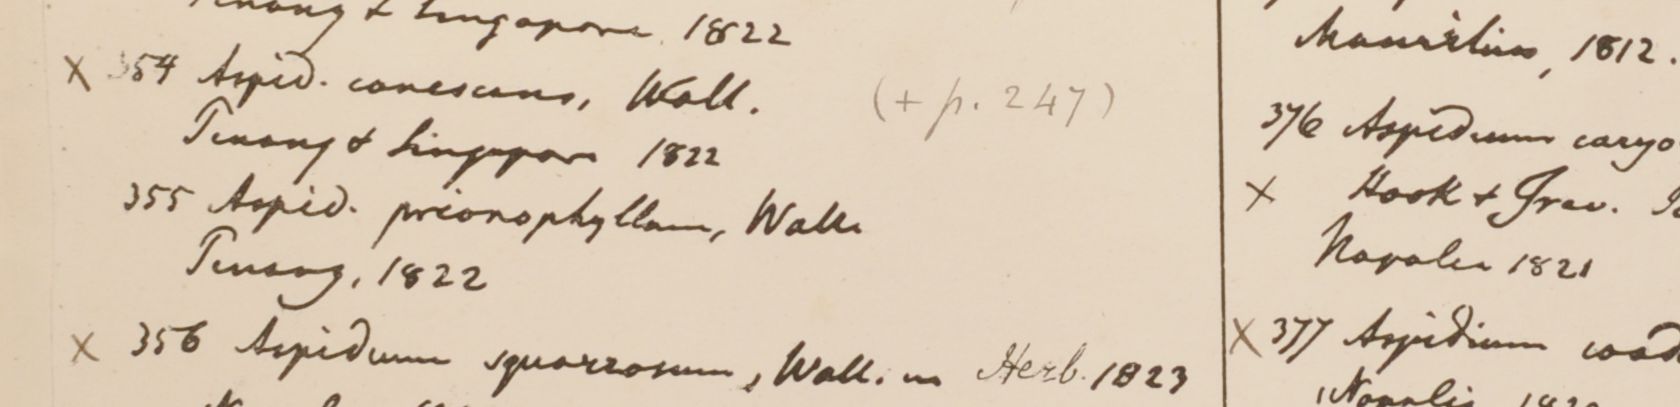 Penang & Singapore, 1822
X 354 Aspid. canescans, Wall. (+ p. 247)
Penang & Singapore 1822
355 Aspid. prionophyllum, Wall.
Penang, 1822
X 356 Aspidium squarrosum, Wall. in Herb. 1823
Mauritius, 1812.
376 Aspidium caryo
X Hook & Grev.
Napalia 1821
X 377 Aspidium coad
Napalia